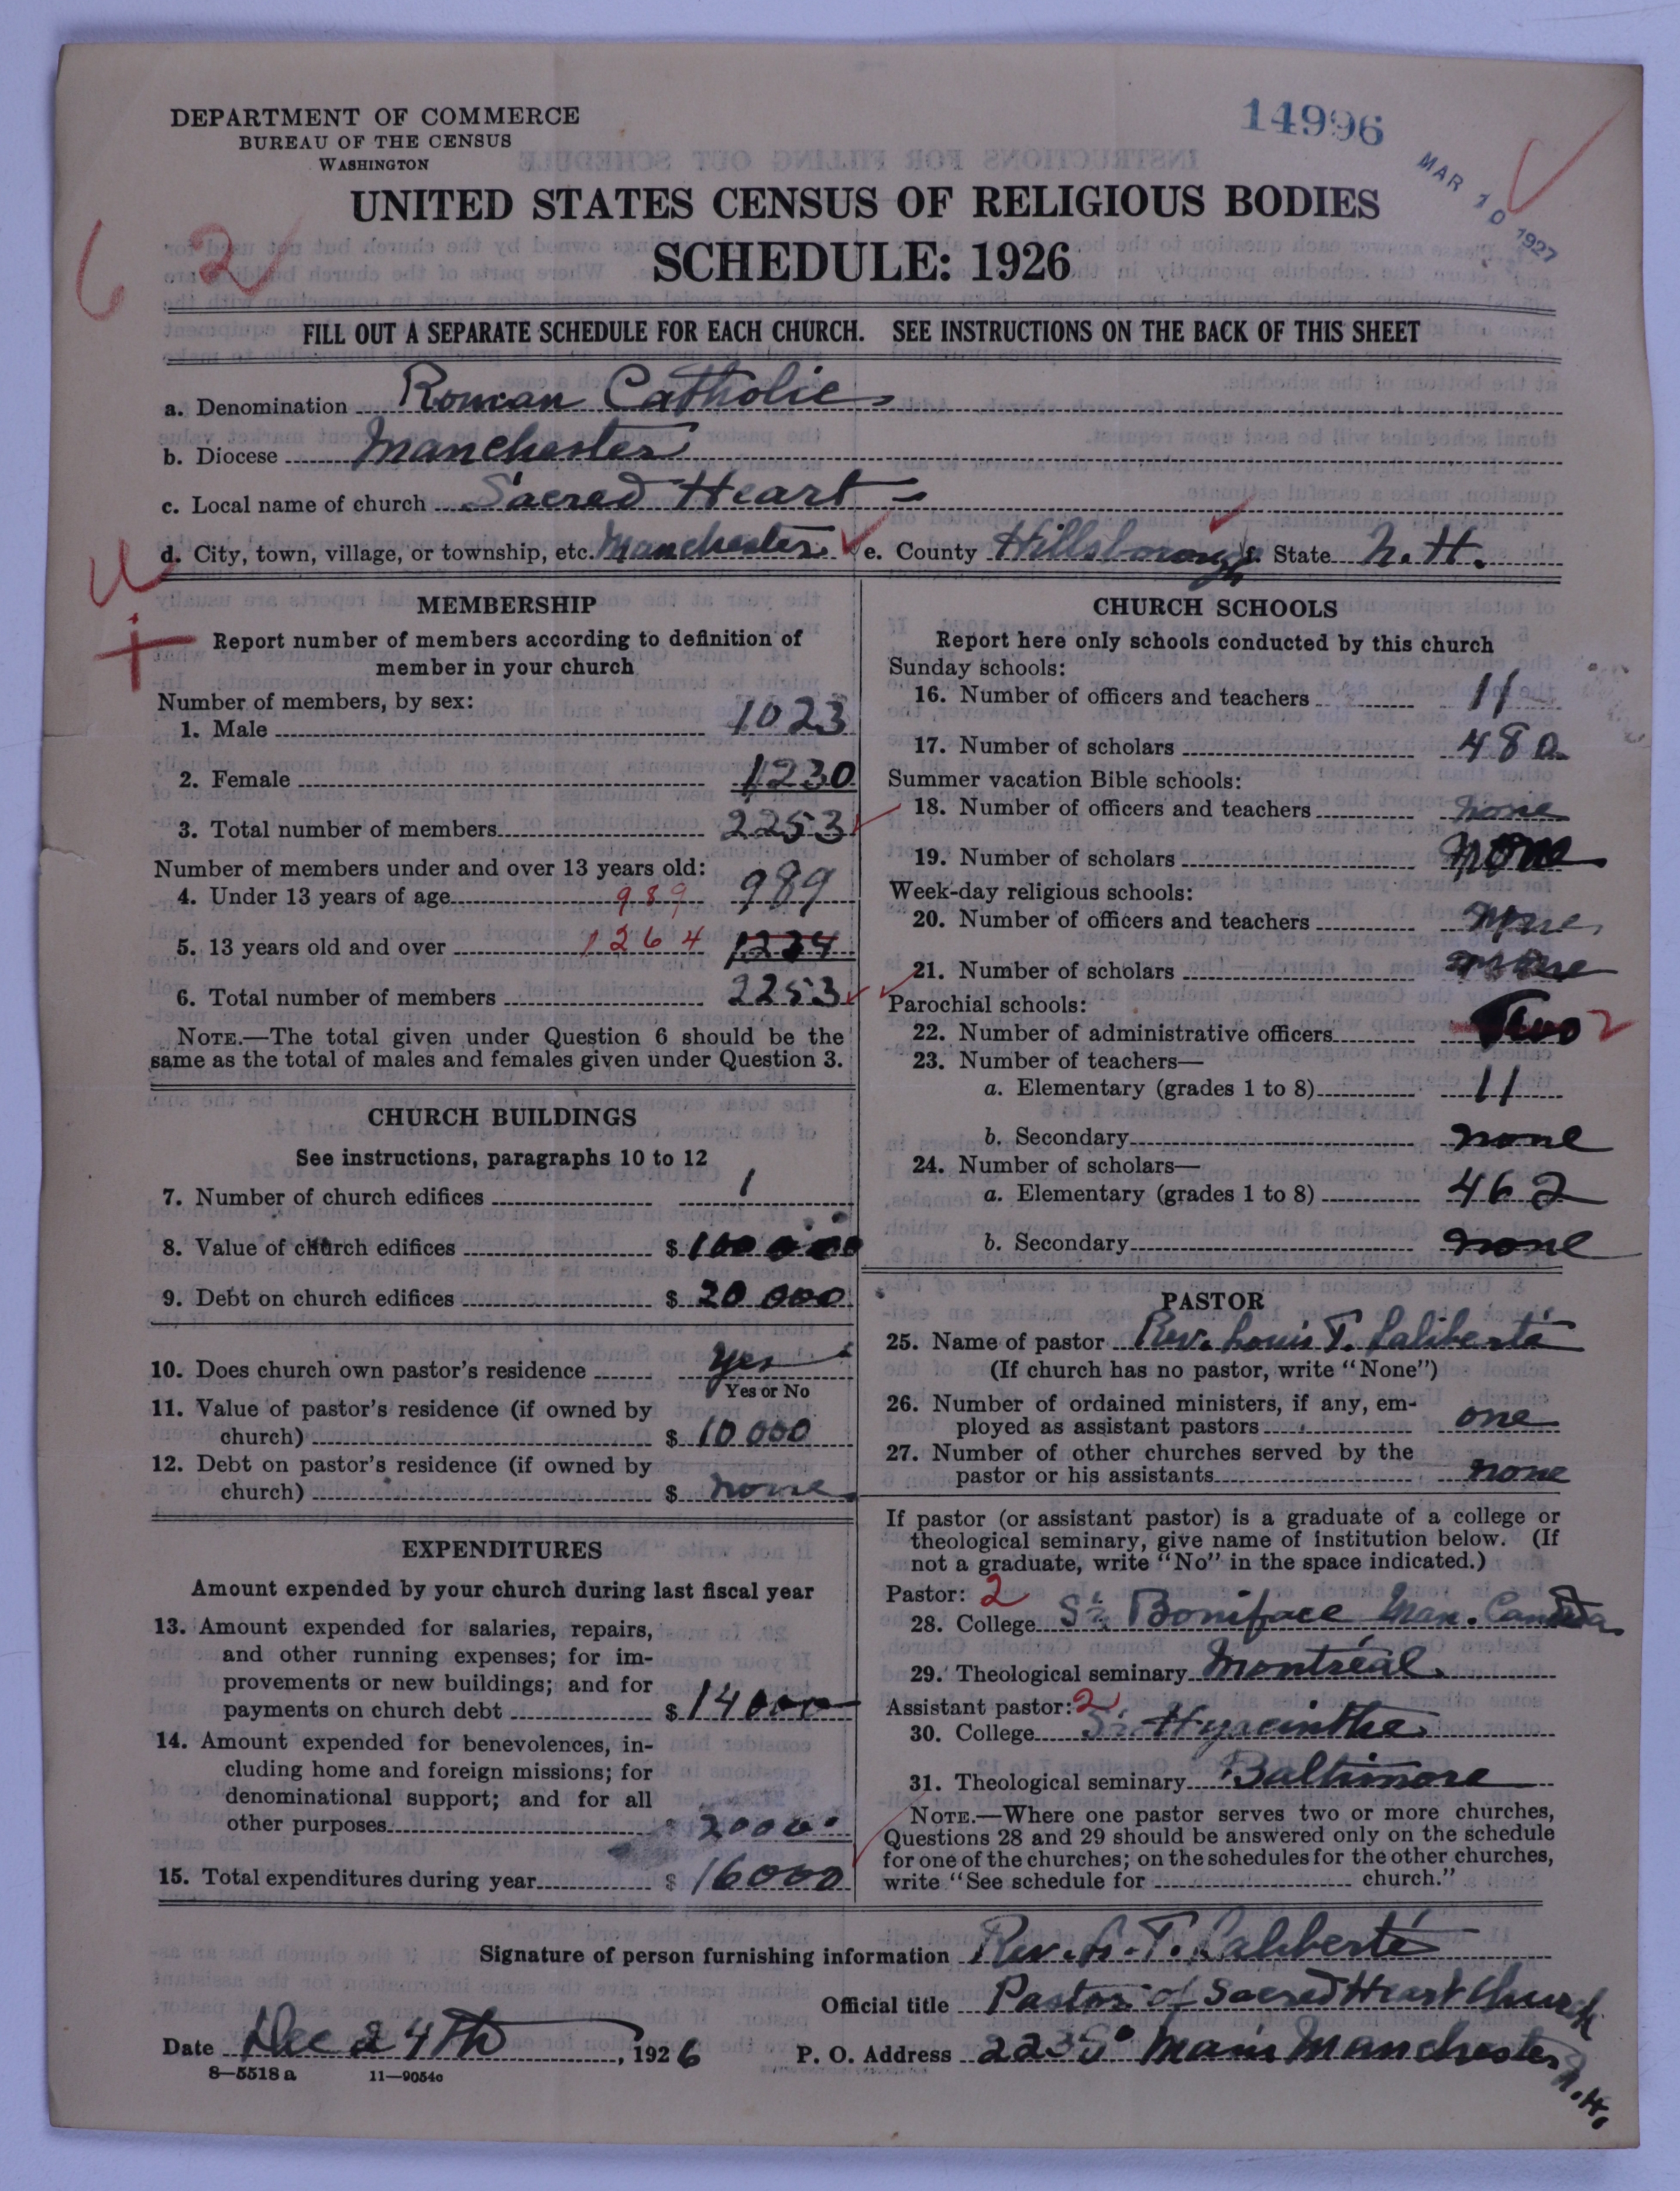 DEPARTMENT OF COMMERCE
BUREAU OF THE CENSUS
WASHINGTON
14996
MAR 10 1927
UNITED STATES CENSUS OF RELIGIOUS BODIES
SCHEDULE: 1926
6 2
FILL OUT A SEPARATE SCHEDULE FOR EACH CHURCH. SEE INSTRUCTIONS ON THE BACK OF THIS SHEET
a. Denomination Roman Catholic
b. Diocese Manchester
c. Local name of church Sacred Heart
d. City, town, village, or township, etc. Manchester e. County Hillsborough f. State N.H.
MEMBERSHIP
Report number of members according to definition of
member in your church
Number of members, by sex:
1. Male 1023
2. Female 1230
3. Total number of members 2253
Number of members under and over 13 years old:
4. Under 13 years of age 989 989
5. 13 years old and over 1264
6. Total number of members 2253
NOTE.—The total given under Question 6 should be the
same as the total of males and females given under Question 3.
CHURCH BUILDINGS
See instructions, paragraphs 10 to 12
7. Number of church edifices 1
8. Value of church edifices $ 100 000
9. Debt on church edifices $ 20 000
10. Does church own pastor's residence Yes
Yes or No
11. Value of pastor's residence (if owned by
church) $ 10 000
12. Debt on pastor's residence (if owned by
church) $ none
EXPENDITURES
Amount expended by your church during last fiscal year
13. Amount expended for salaries, repairs,
and other running expenses; for im-
provements or new buildings; and for
payments on church debt $ 14000
14. Amount expended for benevolences, in-
cluding home and foreign missions; for
denominational support; and for all
other purposes $ 2000
15. Total expenditures during year $ 16000
CHURCH SCHOOLS
Report here only schools conducted by this church
Sunday schools:
16. Number of officers and teachers 11
17. Number of scholars 480
Summer vacation Bible schools:
18. Number of officers and teachers none
19. Number of scholars none
Week-day religious schools:
20. Number of officers and teachers none
21. Number of scholars none
Parochial schools:
22. Number of administrative officers Two 2
23. Number of teachers—
a. Elementary (grades 1 to 8) 11
b. Secondary none
24. Number of scholars—
a. Elementary (grades 1 to 8) 462
b. Secondary none
PASTOR
25. Name of pastor Rev. Louis T. Laliberté
(If church has no pastor, write "None")
26. Number of ordained ministers, if any, em-
ployed as assistant pastors one
27. Number of other churches served by the
pastor or his assistants none
If pastor (or assistant pastor) is a graduate of a college or
theological seminary, give name of institution below. (If
not a graduate, write "No" in the space indicated.)
Pastor: 2
28. College St. Boniface Man. Canada
29. Theological seminary Montréal
Assistant pastor: 2
30. College St. Hyacinthe
31. Theological seminary Baltimore
NOTE.—Where one pastor serves two or more churches,
Questions 28 and 29 should be answered only on the schedule
for one of the churches; on the schedules for the other churches,
write "See schedule for church."
Signature of person furnishing information Rev. L. T. Laliberté
Official title Pastor of Sacred Heart Church
Date Dec 24th, 1926 P. O. Address Main Manchester N.H.
8—5518a 11—9054c